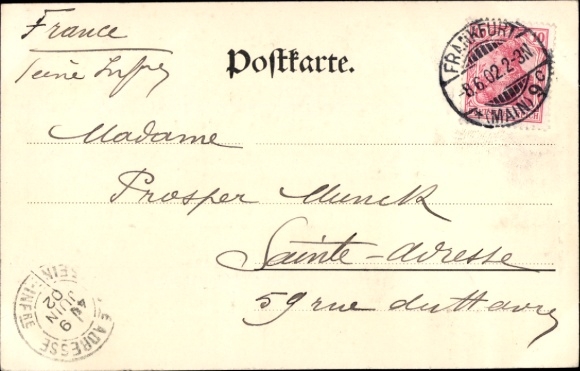 France
Seine Infre
Postkarte.
FRANKFURT
-8.6.02.2-3N
*(MAIN) 9 c
10
Madame
Prosper Munck
Sainte-Adresse
59 rue du Havre
E ADRESSE
SEIN -INFRE
9
JUIN
02